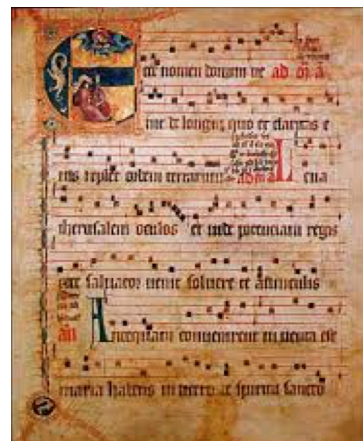 cce nomen domini ue ad
nit de longin quo et claritas e
ius replet orbem terrarum L eua
iherusalem oculos et uide potentiam regis
ecce saluator uenit soluere te a uinculis
A ntequam conuenirent inuenta est
maria habens in utero de spiritu sancto